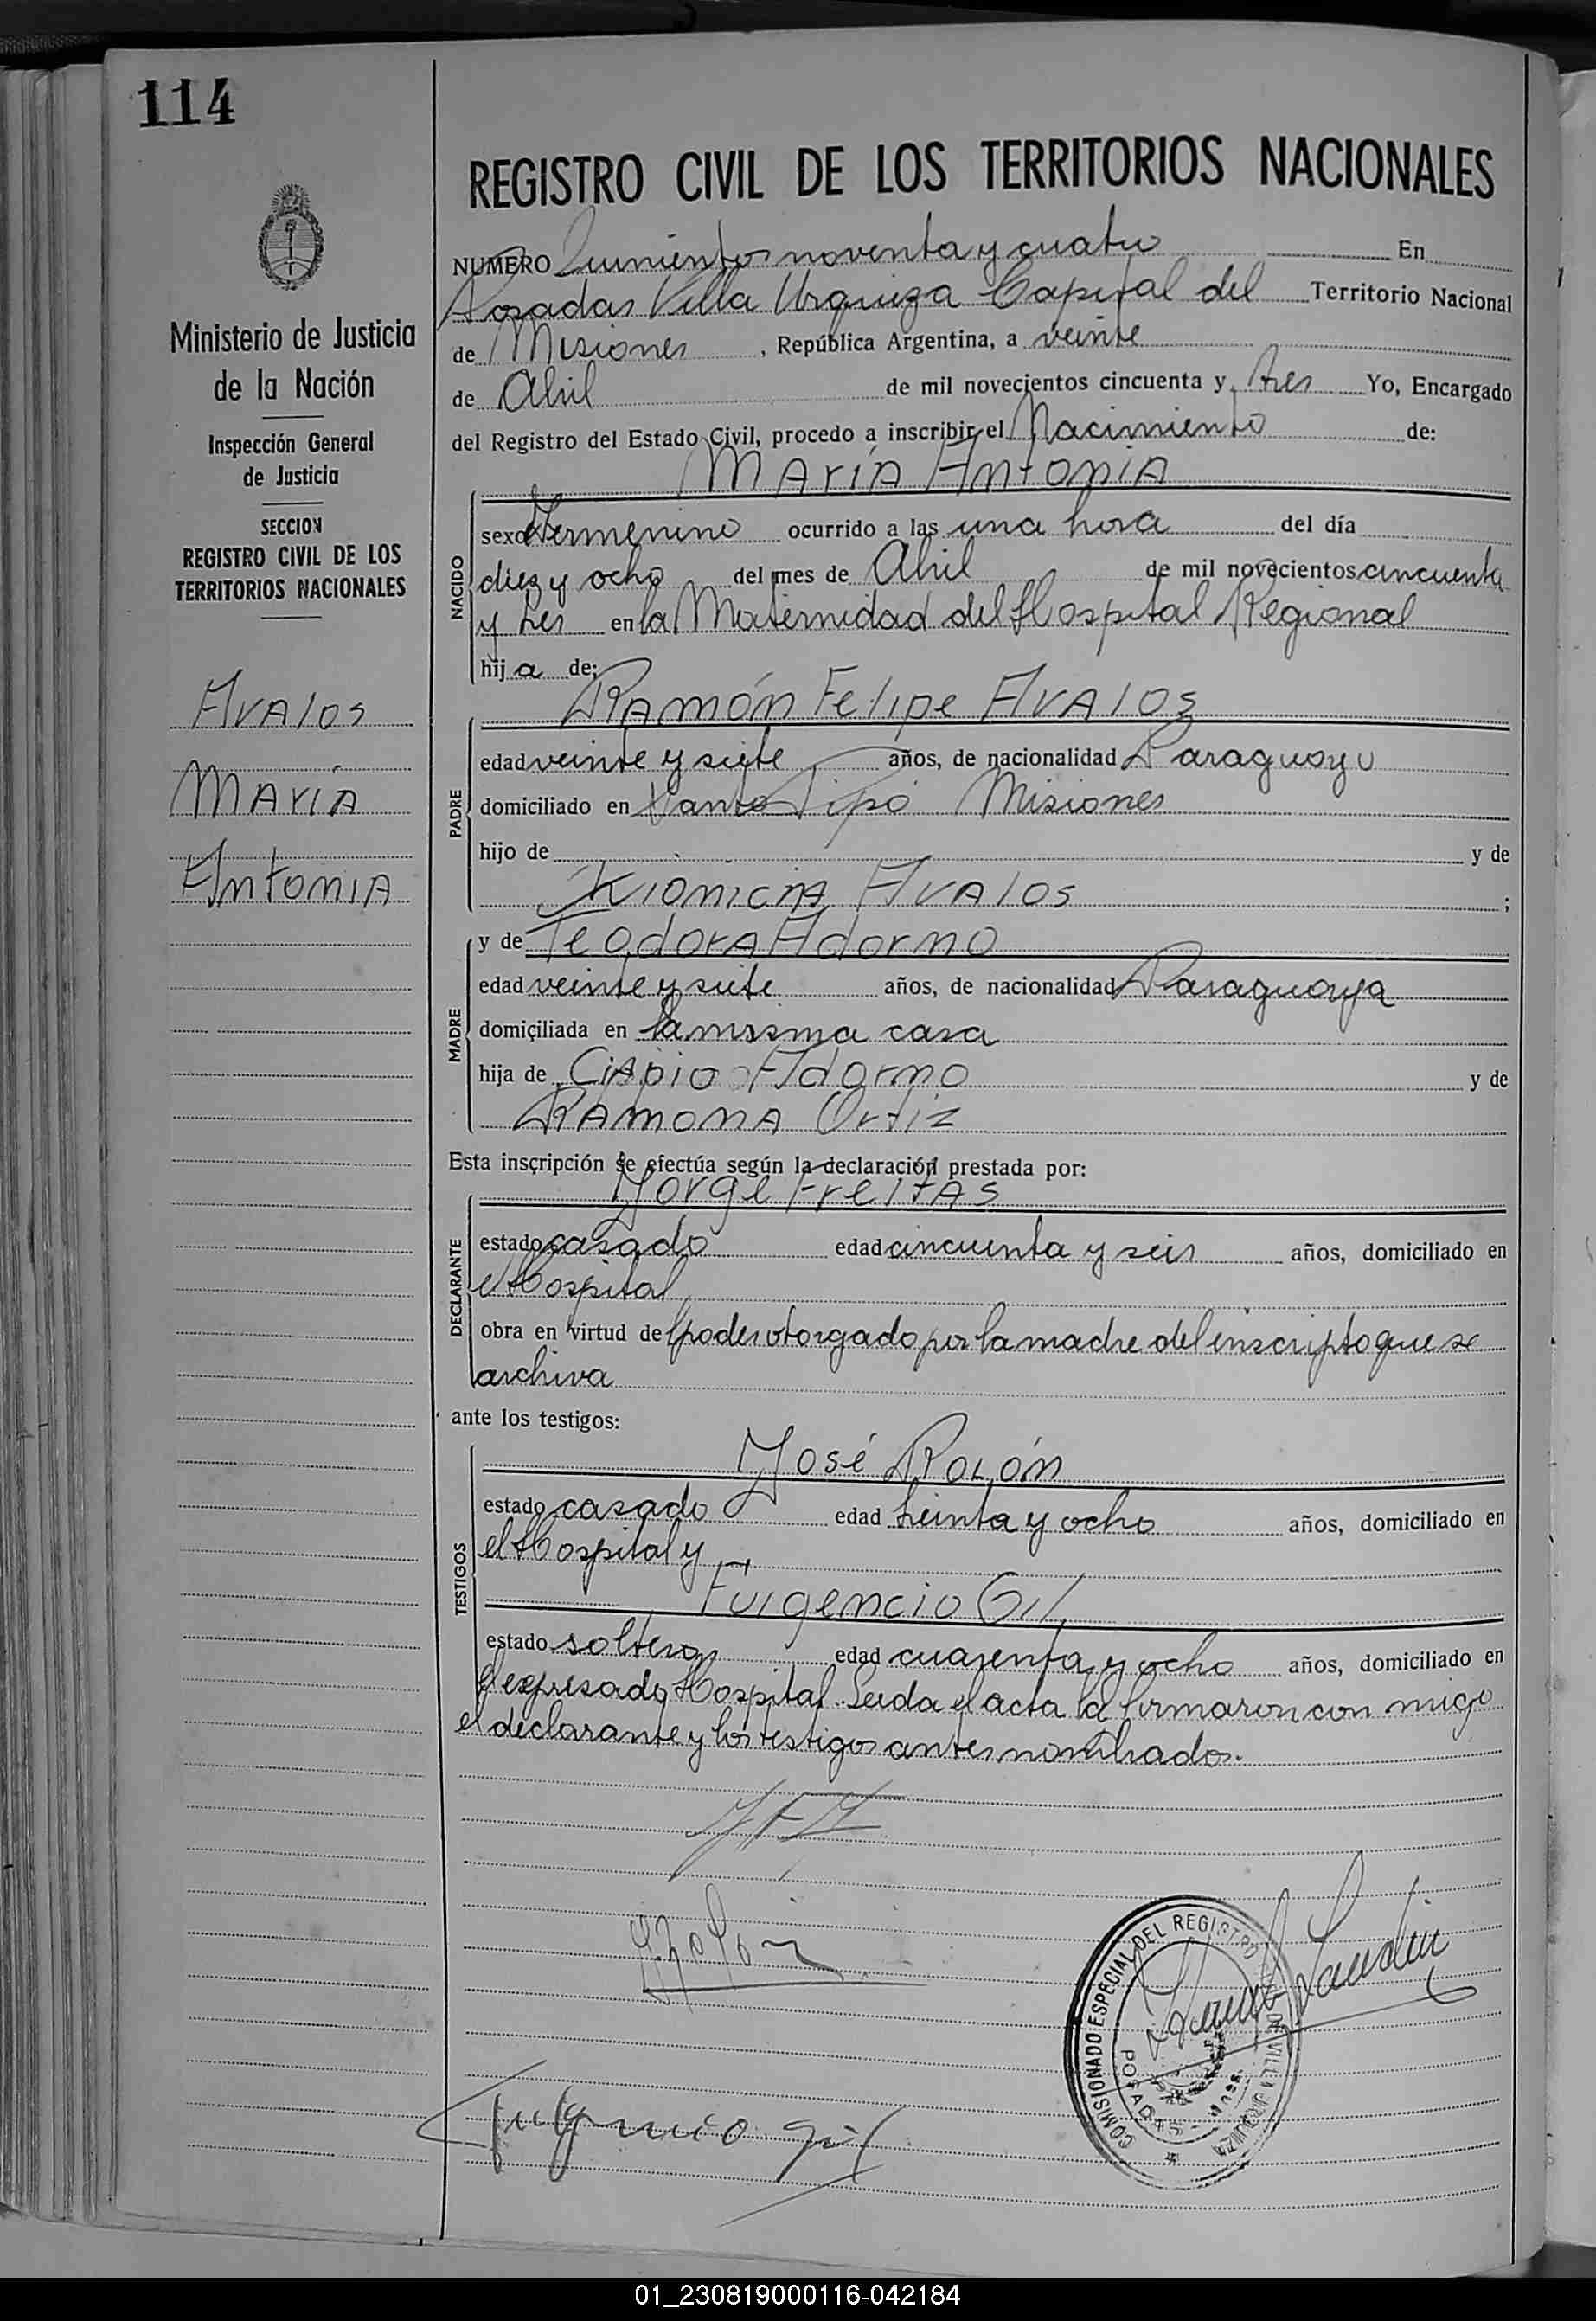 114
REGISTRO CIVIL DE LOS TERRITORIOS NACIONALES
Ministerio de Justicia
de la Nación
Inspección General
de Justicia
SECCION
REGISTRO CIVIL DE LOS
TERRITORIOS NACIONALES
Avalos
María
Antonia
NUMERO Quinientos noventa y cuatro En
Posadas Villa Urquiza Capital del Territorio Nacional
de Misiones, República Argentina, a veinte
de Abril de mil novecientos cincuenta y tres Yo, Encargado
del Registro del Estado Civil, procedo a inscribir el Nacimiento de:
María Antonia
NACIDO
sexo Femenino ocurrido a las una hora del día
diez y ocho del mes de Abril de mil novecientos cincuenta
y tres en la Maternidad del Hospital Regional
hija de:
Ramón Felipe Avalos
PADRE
edad veinte y siete años, de nacionalidad Paraguayo
domiciliado en Santo Pipó Misiones
hijo de y de
Avalos;
y de Teodora Adorno
MADRE
edad veinte y siete años, de nacionalidad Paraguaya
domiciliada en la misma casa
hija de Adorno y de
Ramona Ortiz
Esta inscripción se efectúa según la declaración prestada por:
Jorge Freitas
DECLARANTE
estado casado edad cincuenta y seis años, domiciliado en
el Hospital
obra en virtud del poder otorgado por la madre del inscripto que se
archiva
ante los testigos:
José Rolón
TESTIGOS
estado casado edad treinta y ocho años, domiciliado en
el Hospital y
Fulgencio Gil
estado soltero edad cuarenta y ocho años, domiciliado en
el expresado Hospital. Leida el acta la firmaron con migo
el declarante y los testigos antes nombrados.
JRolón
Fulgencio gil
COMISIONADO ESPECIAL DEL REGISTRO DE VILLA URQUIZA
POSADAS
01_230819000116-042184